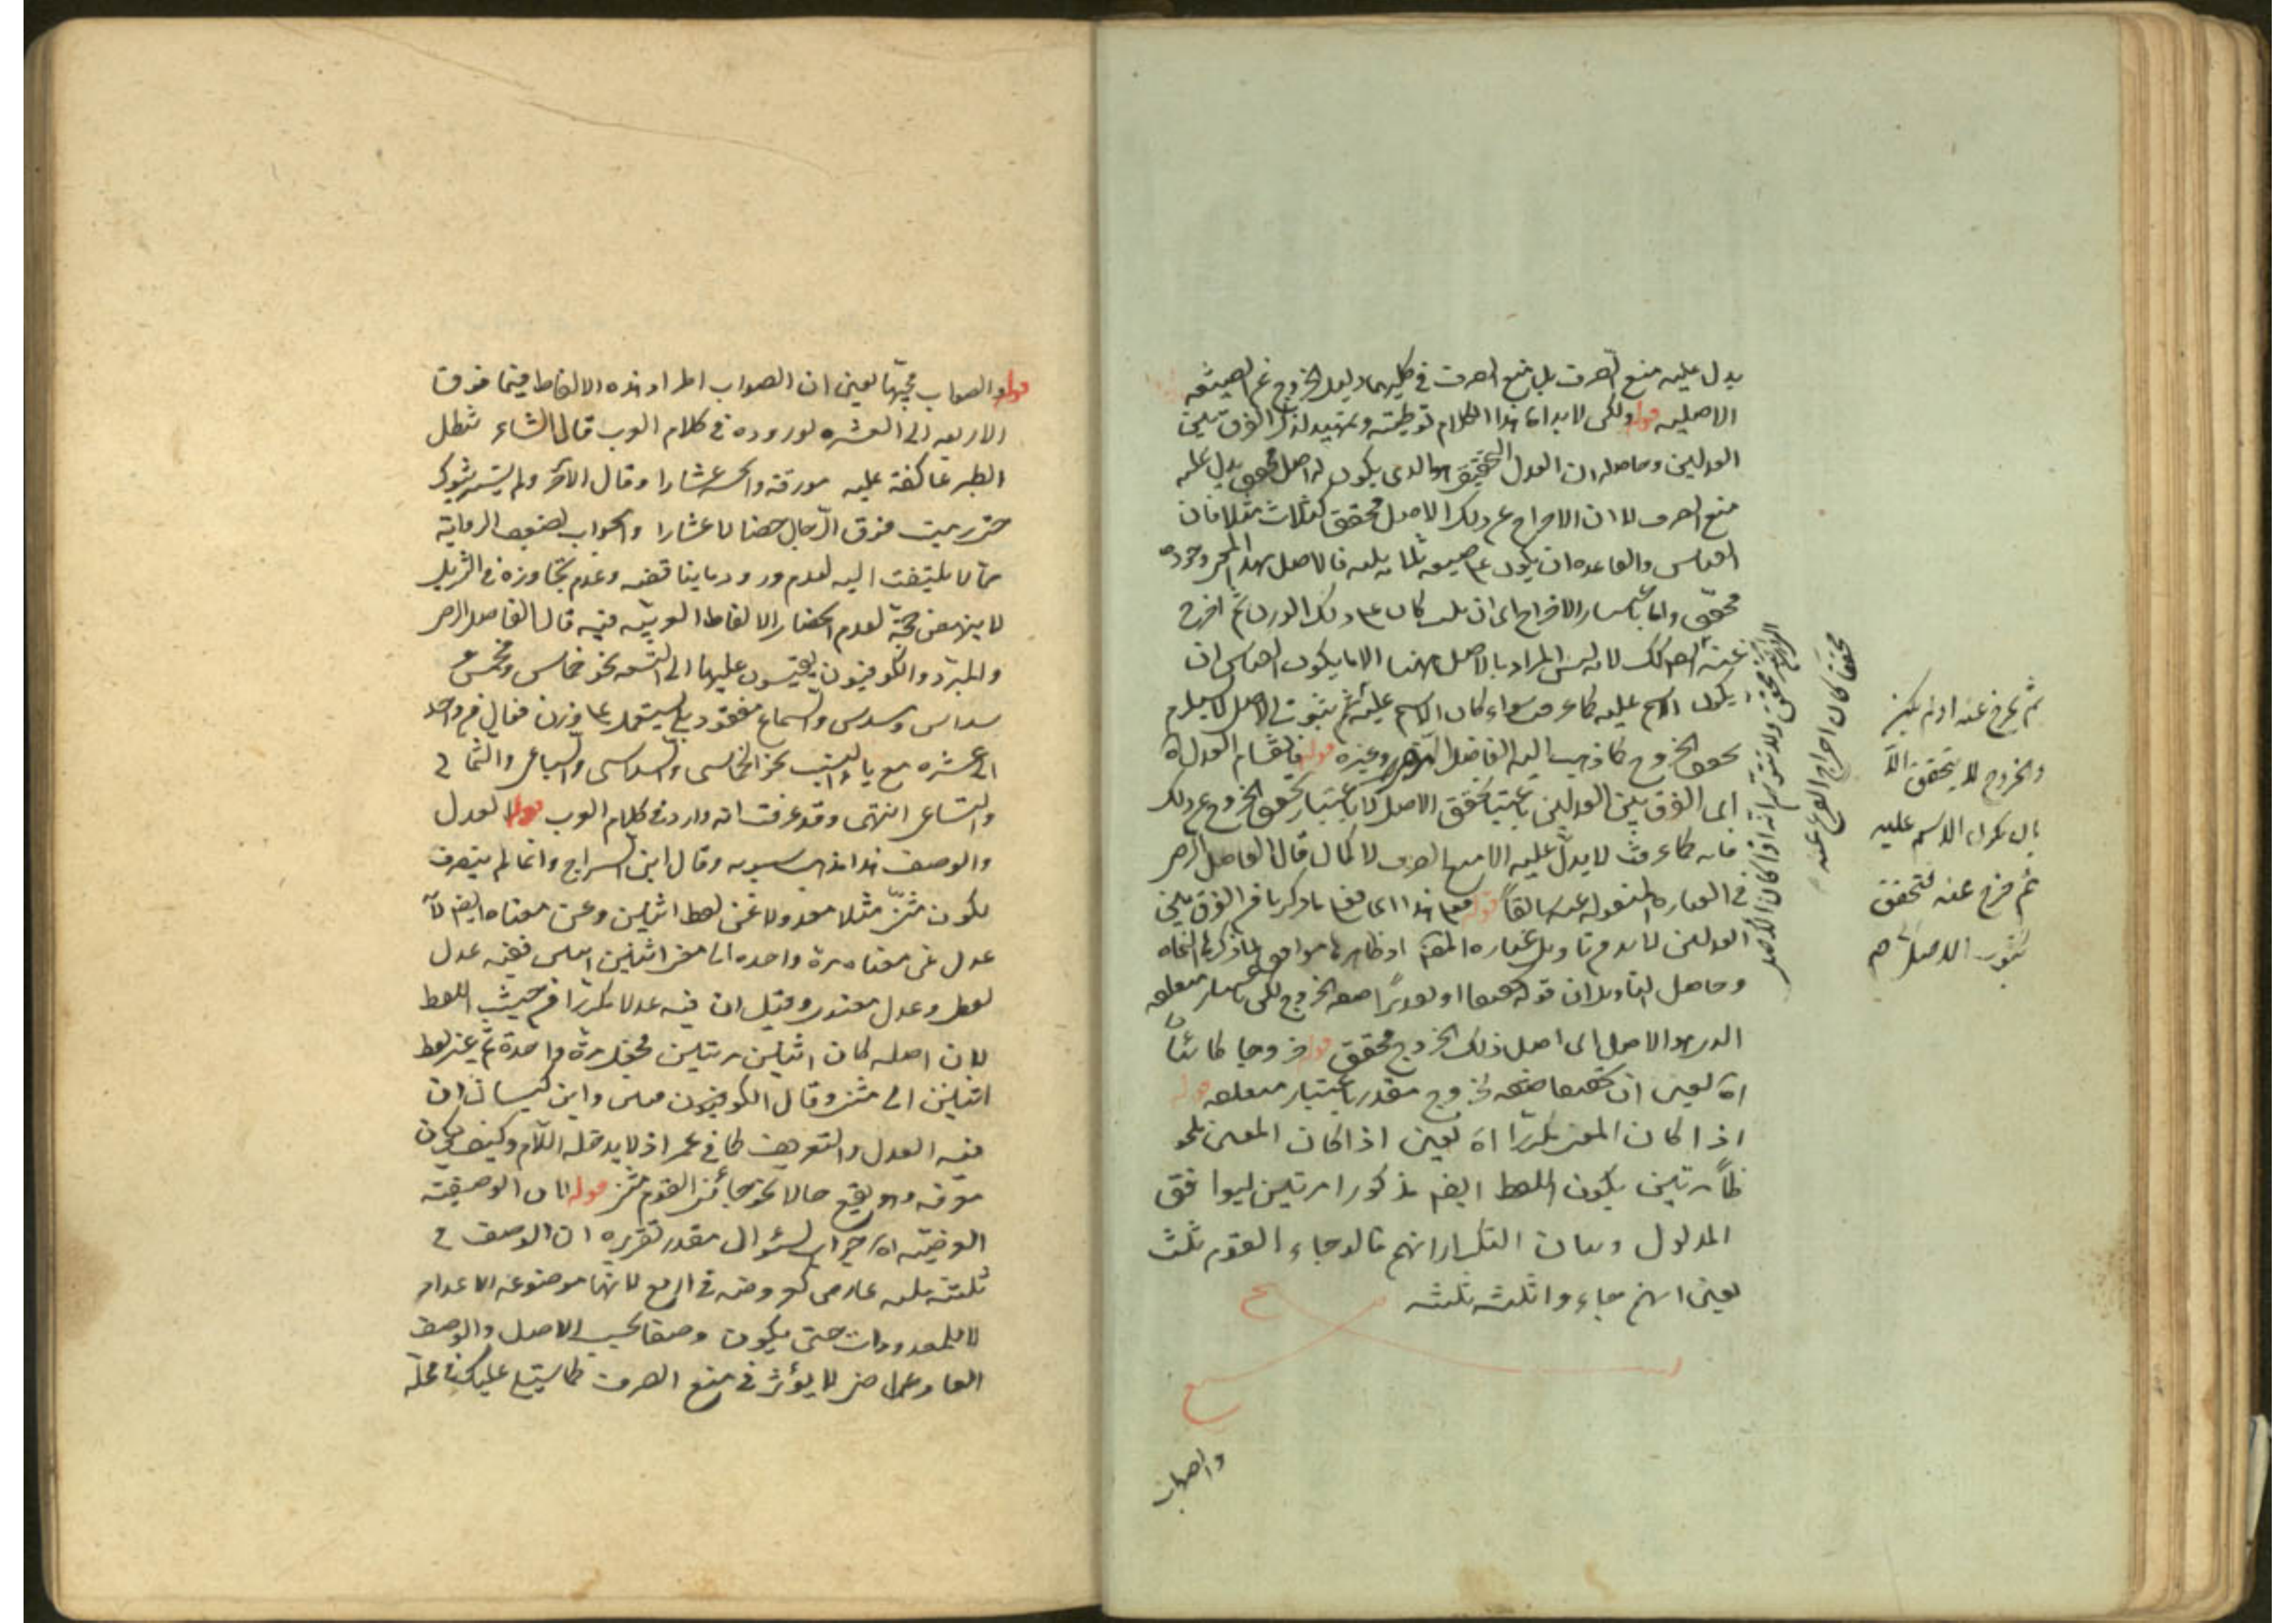 يدل عليه منع الصرف بل منع الصرف في كليهما دليل الخروج عن الصيغة
الاصلية قوله ولكن لا بد اه هذا الكلام توطئة وتمهيد لذكر الفرق بين
العدلين وحاصله ان العدل الحقيقي هو الذي يكون له اصل محقق يدل عليه
منع الصرف لا ان الاخراج عن ذلك الاصل محقق كثلاث مثلا فان
القياس والقاعدة ان يكون على صيغة ثلاثة ثلثة فالاصل بهذا المعنى وجوده
محقق واما باعتبار الاخراج اى ان ثلث كان على ذلك الوزن ثم اخرج
عنه فليس كذلك لانه ليس المراد بالاصل ههنا الا ما يكون القياس ان
يكون الاسم عليه كما عرفت سواء كان الاسم عليه ثم ثبوت الاصل لا يستلزم
تحقق الخروج كما ذهب اليه الفاضل وغيره قوله فانقسام العدل اه
اى الفرق بين العدلين باعتبار تحقق الاصل لا باعتبار تحقق الخروج عن ذلك
فانه كما عرفت لا يدل عليه الا منع الصرف لا كما قال الفاضل الرضي
في العبارة المنقولة عنه سابقا قوله فعلى هذا اى فعلى ما ذكرنا من الفرق بين
العدلين لا بد من تأويل عبارة المصنف اذ ظاهرها موافق لما ذكره النحاة
وحاصل التأويل ان قوله تحقيقا او تقديرا صفة الخروج لكن باعتبار متعلقه
الذي هو الاصل اى اصل ذلك الخروج محقق قوله خروجا كائنا
اه يعني ان تحقيقا صفة خروج مقدر باعتبار متعلقه قوله
اذا كان المعنى مكررا اه يعني اذا كان المعنى ملحو
ظا مرتين يكون اللفظ ايضا مذكورا مرتين ليوافق
المدلول وبيان التكرار انهم قالوا جاء القوم ثلث
يعني انهم جاءوا ثلثة ثلثة
والصواب
محققا كان اخراج الفرع عنه
ثم يخرج عنه او لم يكن
والخروج لا يتحقق الا
بان يكون الاسم عليه
ثم خرج عنه فتحقق
ثبوت الاصل اهم
قوله والصواب مجيئها يعني ان الصواب اطراد هذه الالفاظ فيما فوق
الاربعة الى العشرة لوروده في كلام العرب قال الشاعر تظل
الطير عاكفة عليه وقال الآخر ولم يستريثوك
حتى رميت فوق الرجال خصالا عشارا والجواب لضعف الرواية
مما لا يلتفت اليه لعدم ورود ما يناقضه وعدم تجاوزه في التنزيل
لا ينهض حجة لعدم انحصار الالفاظ العربية فيه قال الفاضل الرضي
والمبرد والكوفيون يقيسون عليهما الى التسعة نحو خماس ومخمس
سداس ومسدس والسماع مفقود بل يستعمل على وزن فعال من واحد
الى عشرة مع ياء النسب نحو الخماسي والسداسي والسباعي والثماني
والتساعي انتهى وقد عرفت انه وارد في كلام العرب قوله العدل
والوصف هذا مذهب سيبويه وقال ابن السراج وانما لم ينصرف
لكون مثنى مثلا معدولا عن لفظ اثنين وعن معناه ايضا لانه
عدل عن معناه مرة واحدة الى معنى اثنين اثنين ففيه عدل
لفظي وعدل معنوي وقيل ان فيه عدلا مكررا من حيث اللفظ
لان اصله كان اثنين مرتين فجعل مرة واحدة ثم غير لفظ
اثنين الى مثنى وقال الكوفيون وابن كيسان ان
فيه العدل والتعريف كما في عمر اذ لا يدخله اللام وكيف يكون
معرفة وهو يقع حالا نحو جائني القوم مثنى قوله لان الوصفية
العرضية اه جواب لسؤال مقدر تقريره ان الوصف في
ثلثة ثلثة عارض كعروضه في اربع لانها موضوعة الاعداد
لا للمعدودات حتى يكون وصفا بحسب الاصل والوصف
العارضي لا يؤثر في منع الصرف كما سيتلى عليك في محله